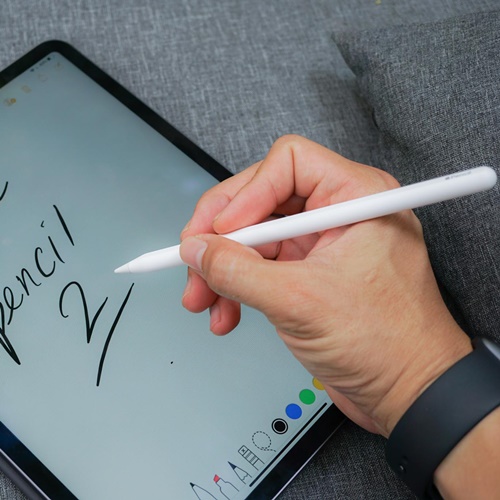 pencil
2